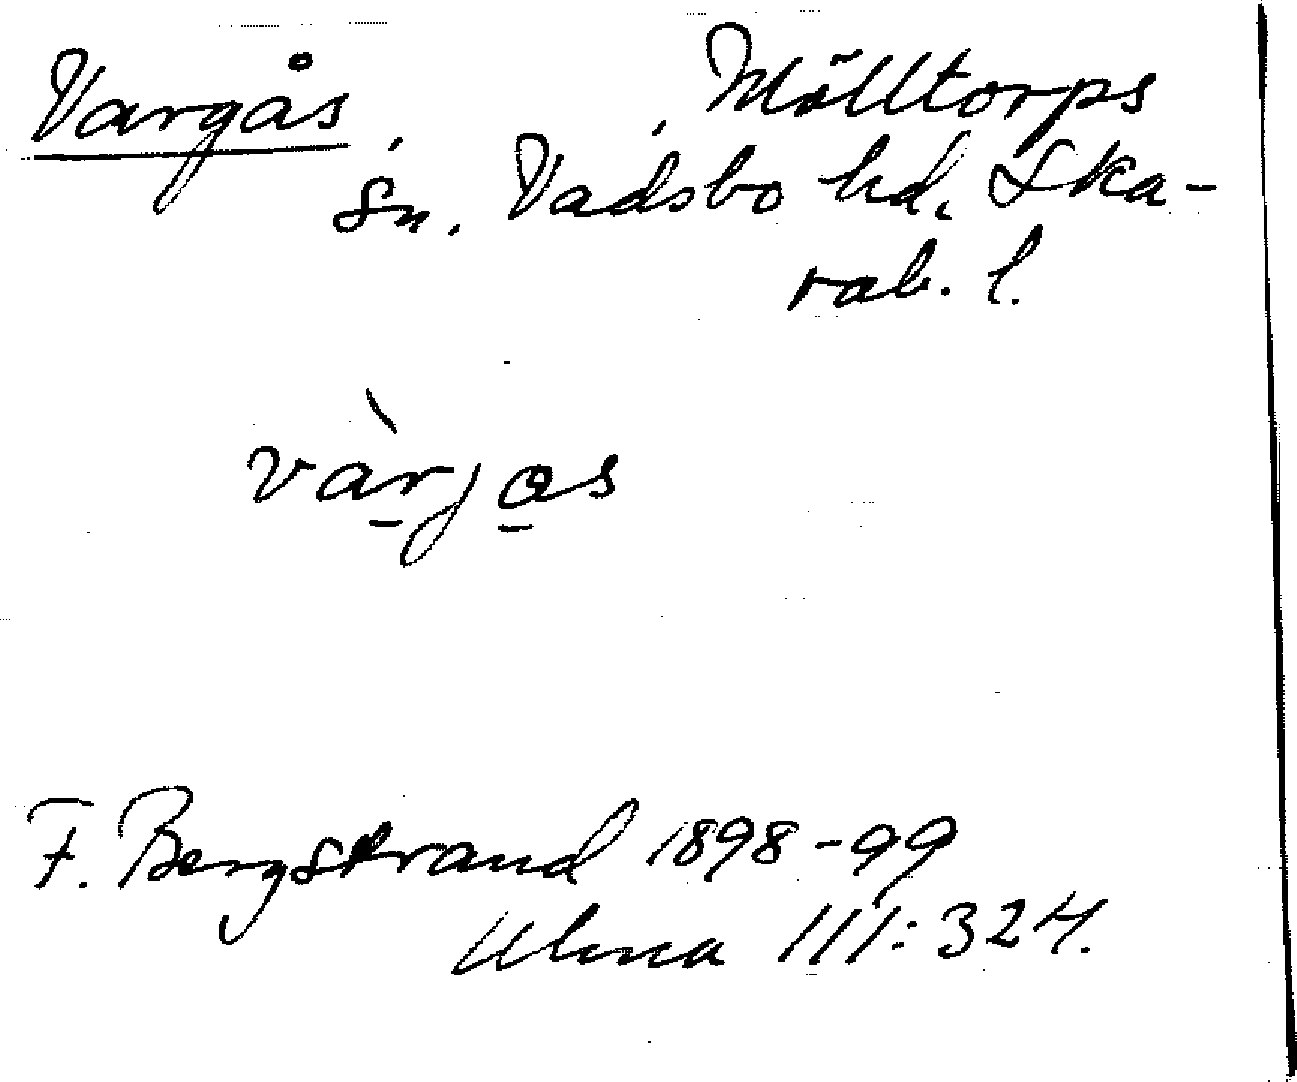 Vargås, , Mölltorps
sn. Vadsbo hd. Ska-
rab. l.
vàrjas
F. Bergstrand 1898-99
Ulma 111:324.